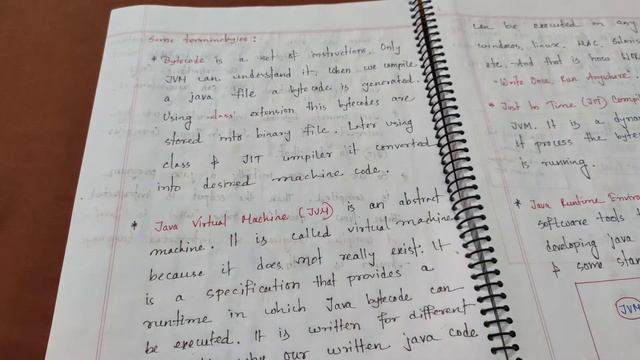 Some terminologies:
* Bytecode is a set of instructions. Only
JVM can understand it, when we compile
a java file a bytecode is generated.
Using .class extension this bytecodes are
stored into binary file. Later using
class & JIT compiler it converted
into desired machine code.
* Java Virtual Machine (JVM) is an abstract
machine. It is called virtual machine
because it does not really exist. It
is a specification that provides a
runtime in which Java bytecode can
be executed. It is written for different
why our written java code
can be executed on any
windows, linux, MAC,
etc. And that is how
"Write Once, Run Anywhere"
* Just In Time (JIT) Compi
JVM. It is a dyna
It process the byte
is running.
* Java Runtime Enviro
software tools
developing java
& some stan
JVM